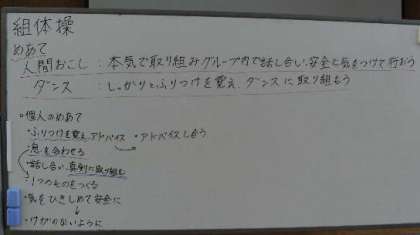 組体操
めあて
人間おこし：本気で取り組みグループ内で話し合い、安全に気をつけて行おう
ダンス：しっかりとふりつけを覚え、ダンスに取り組もう
・個人のめあて
・ふりつけを覚えアドバイス ・アドバイスし合う
・息を合わせる
・話し合い、真剣に取り組む
・1つのものをつくる
・気をひきしめて安全に
↓
・けがのないように